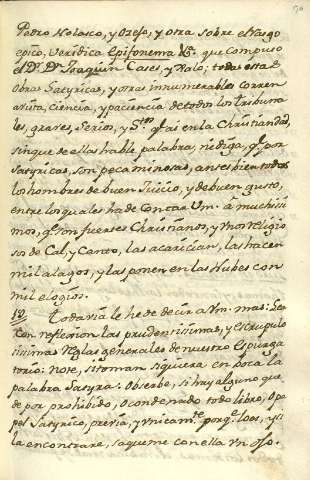 Pedro Nolasco, y Ozejo, y otra sobre el Rasgo
epico, veridica Epifonema &c.ª que compuso
el D.r D.n Joaquin Cases, y Xalo; todas estas
Obras Satyricas, y otras innumerables corren
a vista, ciencia, y paciencia de todos los tribuna
les, graves, serios, y S.tos q.e ai en la Christiandad,
sin que de ellas hable palabra, ni diga, q.e por
Satyricas, son pecaminosas, antes bien todos
los hombres de buen Juicio, y de buen gusto,
entre los quales ha de contar Vm. a muchisi
mos, q.e son fuerses Christianos, y unos religio
sos de Cal, y Canto, las acarician, las hacen
mil alagos, y las ponen en las Nubes con
mil elogios.
12 Todavia le he de decir a Vm. mas: Lea
con reflexion las prudentissimas, y escrupulo
sissimas Reglas generales de nuestro Espurga
torio: note, si toman siquiera en boca la
palabra Satyra: Observe, si hay alguno que
de por prohibido, o condenado todo libro, o pa
pel Satyrico, precisa, y unicam.te porq.e loes, y si
la encontrare, saqueme con ella un ojo.